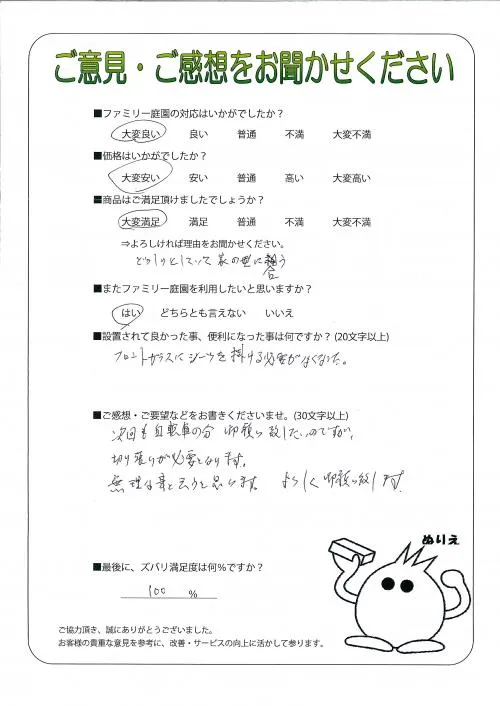 ご意見・ご感想をお聞かせください
■ファミリー庭園の対応はいかがでしたか？
大変良い 良い 普通 不満 大変不満
■価格はいかがでしたか？
大変安い 安い 普通 高い 大変高い
■商品はご満足頂けましたでしょうか？
大変満足 満足 普通 不満 大変不満
⇒よろしければ理由をお聞かせください。
どっしりとしていて 家の型に 合う
■またファミリー庭園を利用したいと思いますか？
はい どちらとも言えない いいえ
■設置されて良かった事、便利になった事は何ですか？ (20文字以上)
フロントガラスにシーツを掛ける必要がなくなった。
■ご感想・ご要望などをお書きくださいませ。(30文字以上)
次回も自転車の分 御願い致したいのですが、
切り張りが必要となります。
無理な事と云うと思います。 よろしく御願い致します。
ぬりえ
■最後に、ズバリ満足度は何％ですか？
100 %
ご協力頂き、誠にありがとうございました。
お客様の貴重な意見を参考に、改善・サービスの向上に活かして参ります。